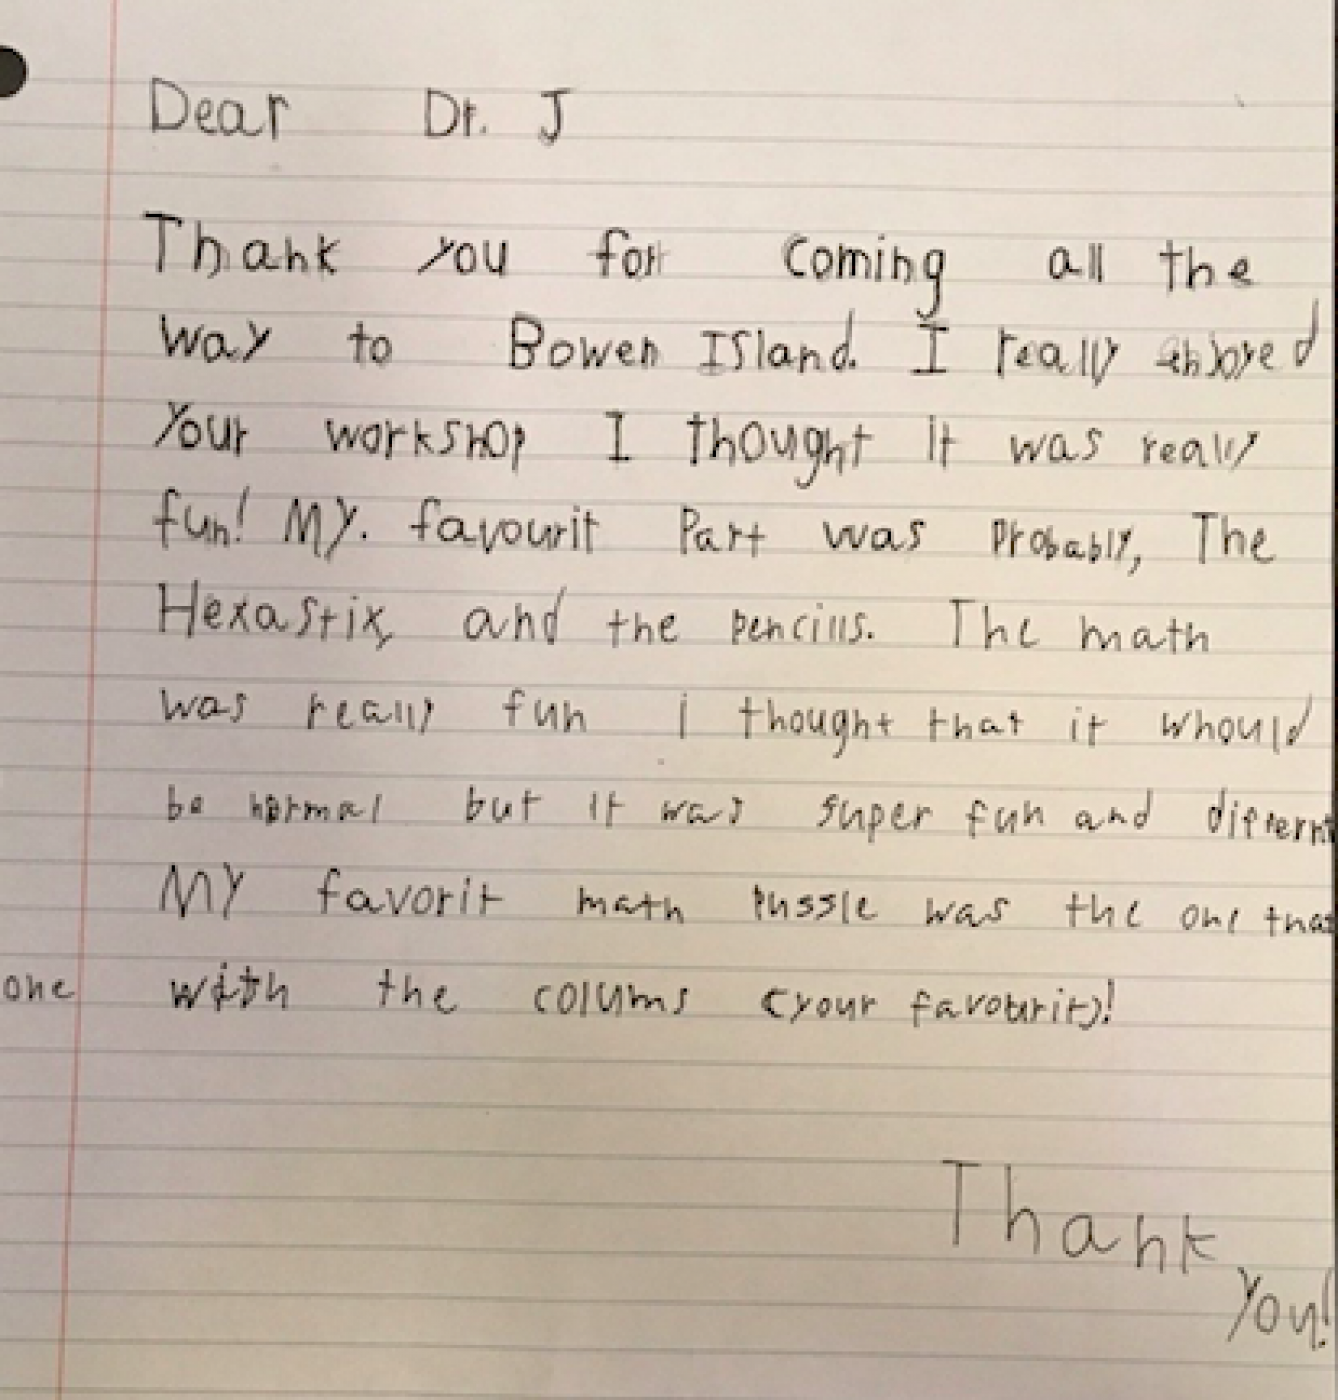 Dear Dr. J
Thank you for coming all the
way to Bowen Island. I really enjoyed
your workshop I thought it was really
fun! My. favourit Part was probably, The
Hexastix, and the pencills. The math
was really fun i thought that it whould
be normal but it was super fun and differnt
My favorit math pussle was the one that
one with the colums (your favourit)!
Thank
you!